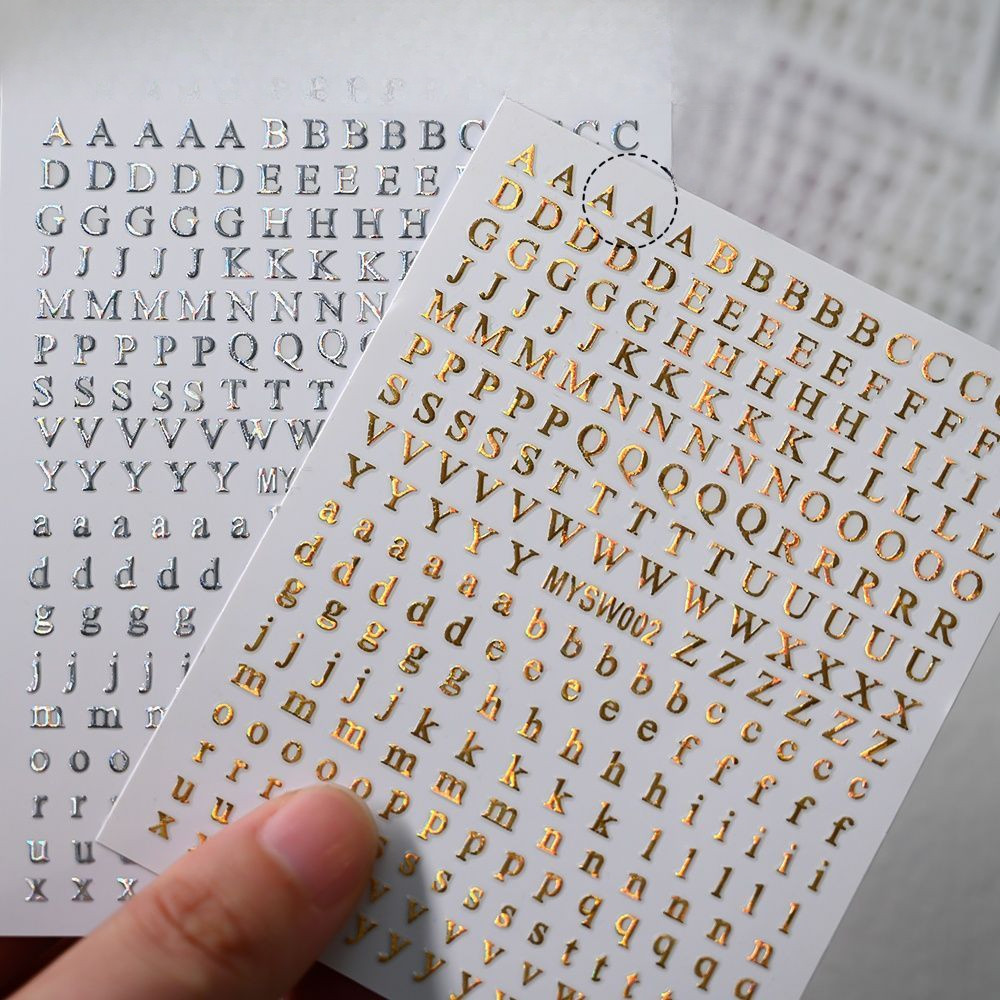 A A A A A B B B B B C C C
D D D D D E E E E
G G G G G H H H H
J J J J J K K K K
M M M M M N N N N
P P P P P Q Q Q
S S S S S T T T
V V V V V W W
Y Y Y Y Y MY
a a a a a
d d d d d
g g g g
j j j j
m m
o o o
r r
u u
x x x
A A A A A B B B B B C C C
D D D D D E E E E E F F F F
G G G G G H H H H H I I I
J J J J J K K K K K L L L L L
M M M M M N N N N N O O O O O
P P P P P Q Q Q Q Q R R R R R
S S S S S T T T T T U U U U U
V V V V V W W W W W X X X X X
Y Y Y Y Y MYSW002 Z Z Z Z Z
a a a a a b b b b b c c c c c
d d d d d e e e e e f f f f f
g g g g g h h h h h i i i i i
j j j j j k k k k k l l l l l
m m m m m n n n n n
o o o o o p p p p p q q q q q
r r r s s s s s t t t
u u v v v v v
x y y y y